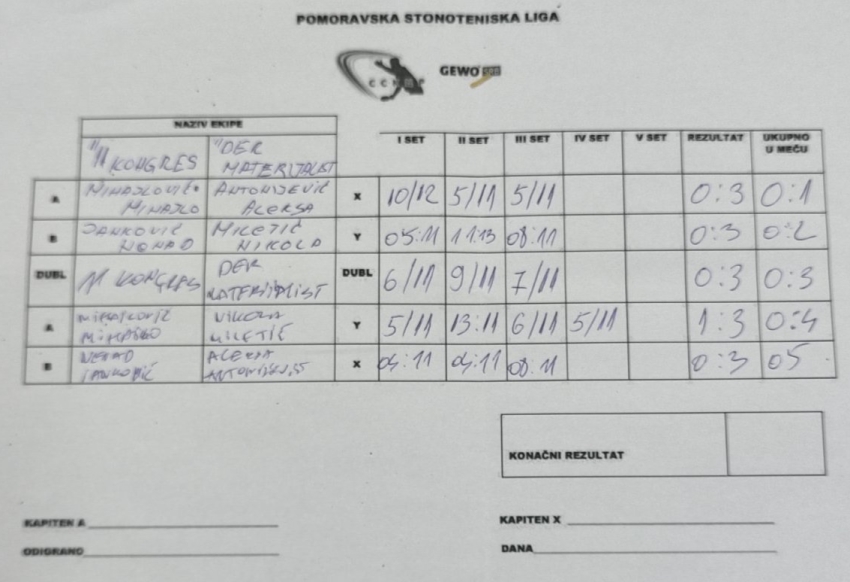 POMORAVSKA STONOTENISKA LIGA
GEWO
NAZIV EKIPE
I SET II SET III SET IV SET V SET REZULTAT UKUPNO U MEČU
"11 KONGRES "DER MATERIJALIST
A MIHAJLOVIĆ MIHAJLO ANTONIJEVIĆ ALEKSA X 10/12 5/11 5/11 0:3 0:1
B JANKOVIĆ NENAD MILETIĆ NIKOLA Y 05:11 11:13 08:11 0:3 0:2
DUBL 11 KONGRES DER MATERIJALIST DUBL 6/11 9/11 7/11 0:3 0:3
A MIHAJLOVIĆ MIHAJLO NIKOLA MILETIĆ Y 5/11 13:11 6/11 5/11 1:3 0:4
B NENAD JANKOVIĆ ALEKSA X 04:11 04:11 08:11 0:3 05
KONAČNI REZULTAT
KAPITEN A
KAPITEN X
ODIGRANO
DANA